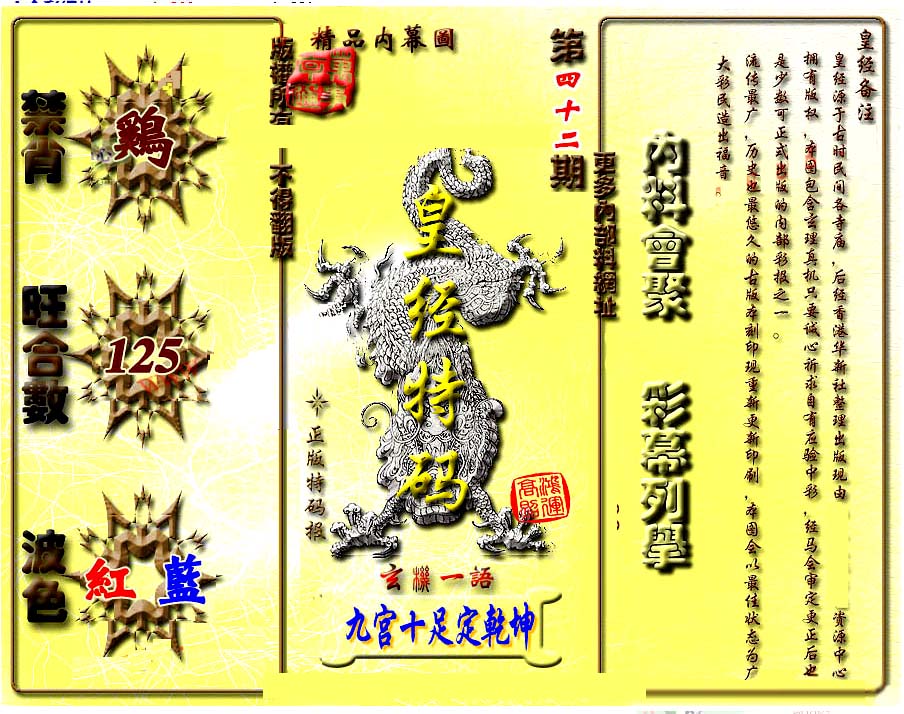 精品内幕圖
第四十二期
版權所有
不得翻版
更多內部料網址
禁肖
鷄
旺合數
125
波色
紅 藍
皇经特码
正版特码报
鴻運高照
玄機一語
九宫十足定乾坤
内料會聚
彩幕列擧
皇经备注
皇经源于古时民间各寺庙，后经香港华新社整理出版现由 资源中心
拥有版权，本图包含玄理真机只要诚心祈求自有应验中彩，经马会审定更正后也
是少数可正式出版的内部彩报之一。
流传最广，历史也最悠久的古版本刻印现重新更新印刷，本图会以最佳状态为广
大彩民造出福音。